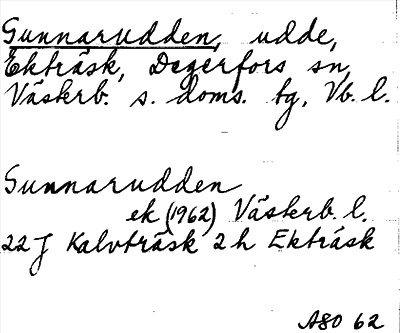 Gunnarudden, udde,
Ekträsk, Degerfors sn,
Västerb. s. doms. tg, Vb. l.
Gunnarudden
ek (1962) Västerb. l.
22 J Kalvträsk 2 h Ekträsk
ASO 62